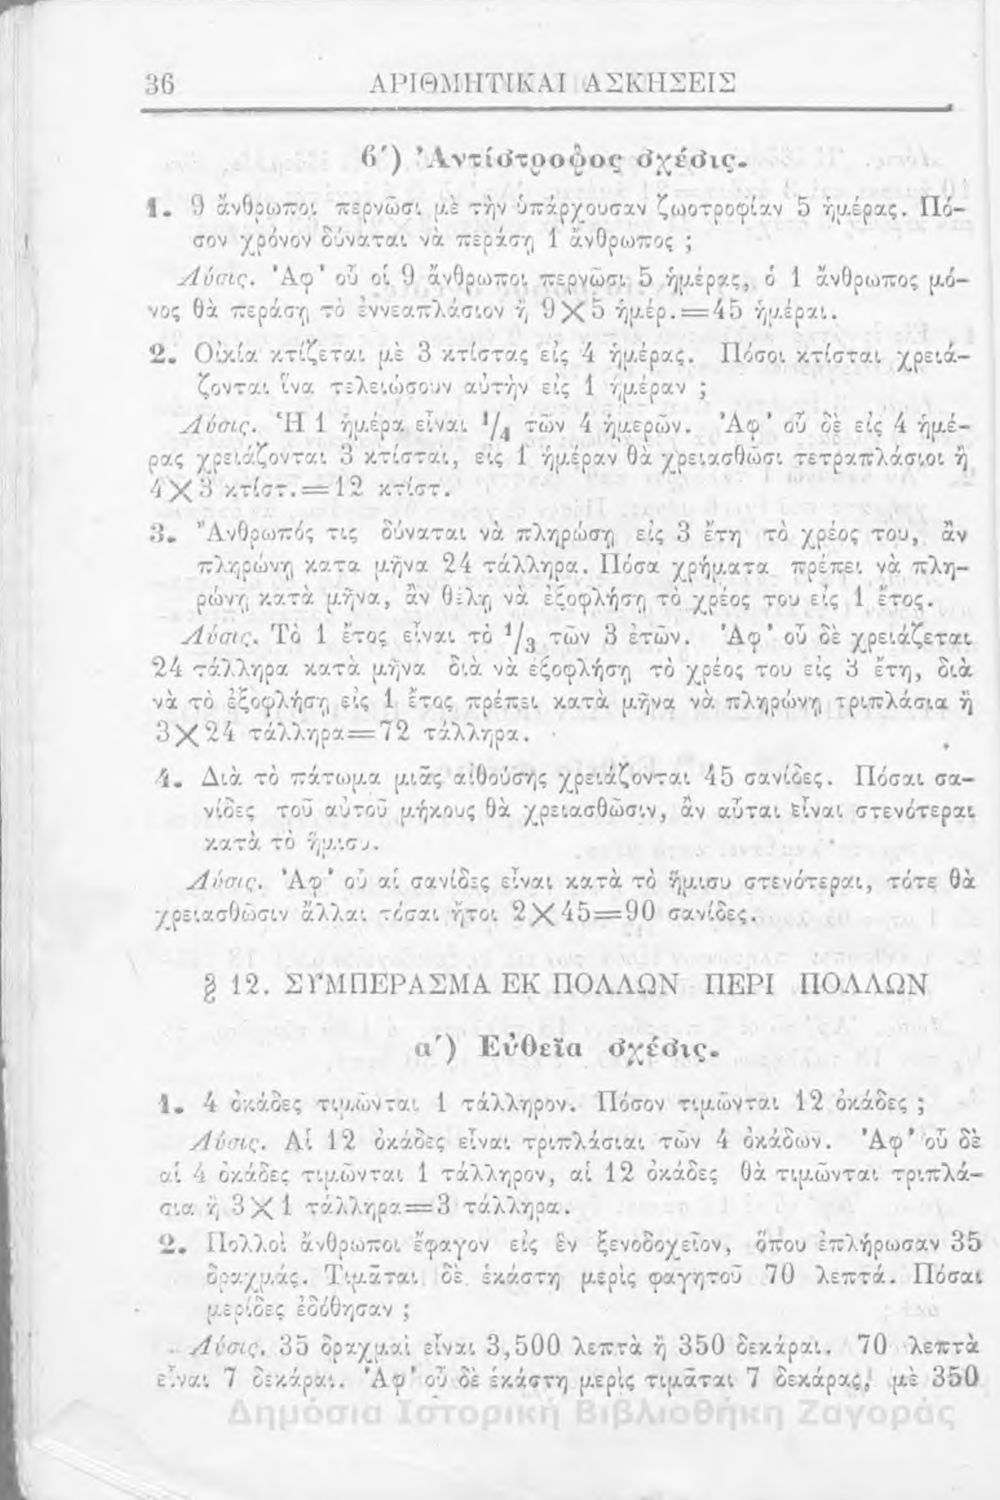 36 ΑΡΙΘΜΗΤΙΚΑΙ ΑΣΚΗΣΕΙΣ
β') Ἀντίστροφος σχέσις.
1. 9 ἄνθρωποι περνῶσι μὲ τὴν ὑπάρχουσαν ζωοτροφίαν 5 ἡμέρας. Πό-
σον χρόνον δύναται νὰ περάσῃ 1 ἄνθρωπος ;
Λύσις. Ἀφ' οὗ οἱ 9 ἄνθρωποι περνῶσι 5 ἡμέρας, ὁ 1 ἄνθρωπος μό-
νος θὰ περάσῃ τὸ ἐννεαπλάσιον ἢ 9×5 ἡμέρ.=45 ἡμέραι.
2. Οἰκία κτίζεται μὲ 3 κτίστας εἰς 4 ἡμέρας. Πόσοι κτίσται χρειά-
ζονται ἵνα τελειώσουν αὐτὴν εἰς 1 ἡμέραν ;
Λύσις. Ἡ 1 ἡμέρα εἶναι 1/4 τῶν 4 ἡμερῶν. Ἀφ' οὗ δὲ εἰς 4 ἡμέ-
ρας χρειάζονται 3 κτίσται, εἰς 1 ἡμέραν θὰ χρειασθῶσι τετραπλάσιοι ἢ
4×3 κτίστ.=12 κτίστ.
3. Ἄνθρωπός τις δύναται νὰ πληρώσῃ εἰς 3 ἔτη τὸ χρέος του, ἂν
πληρώνῃ κατὰ μῆνα 24 τάλληρα. Πόσα χρήματα πρέπει νὰ πλη-
ρώνῃ κατὰ μῆνα, ἂν θέλῃ νὰ ἐξοφλήσῃ τὸ χρέος του εἰς 1 ἔτος.
Λύσις. Τὸ 1 ἔτος εἶναι τὸ 1/3 τῶν 3 ἐτῶν. Ἀφ' οὗ δὲ χρειάζεται
24 τάλληρα κατὰ μῆνα διὰ νὰ ἐξοφλήσῃ τὸ χρέος του εἰς 3 ἔτη, διὰ
νὰ τὸ ἐξοφλήσῃ εἰς 1 ἔτος πρέπει κατὰ μῆνα νὰ πληρώνῃ τριπλάσια ἢ
3×24 τάλληρα=72 τάλληρα.
4. Διὰ τὸ πάτωμα μιᾶς αἰθούσης χρειάζονται 45 σανίδες. Πόσαι σα-
νίδες τοῦ αὐτοῦ μήκους θὰ χρειασθῶσιν, ἂν αὗται εἶναι στενότεραι
κατὰ τὸ ἥμισυ.
Λύσις. Ἀφ' οὗ αἱ σανίδες εἶναι κατὰ τὸ ἥμισυ στενότεραι, τότε θὰ
χρειασθῶσιν ἄλλαι τόσαι ἤτοι 2×45=90 σανίδες.
§ 12. ΣΥΜΠΕΡΑΣΜΑ ΕΚ ΠΟΛΛΩΝ ΠΕΡΙ ΠΟΛΛΩΝ
α') Εὐθεῖα σχέσις.
1. 4 ὀκάδες τιμῶνται 1 τάλληρον. Πόσον τιμῶνται 12 ὀκάδες ;
Λύσις. Αἱ 12 ὀκάδες εἶναι τριπλάσιαι τῶν 4 ὀκάδων. Ἀφ' οὗ δὲ
αἱ 4 ὀκάδες τιμῶνται 1 τάλληρον, αἱ 12 ὀκάδες θὰ τιμῶνται τριπλά-
σια ἢ 3×1 τάλληρα=3 τάλληρα.
2. Πολλοὶ ἄνθρωποι ἔφαγον εἰς ἓν ξενοδοχεῖον, ὅπου ἐπλήρωσαν 35
δραχμάς. Τιμᾶται δὲ ἑκάστη μερὶς φαγητοῦ 70 λεπτά. Πόσαι
μερίδες ἐδόθησαν ;
Λύσις. 35 δραχμαὶ εἶναι 3,500 λεπτὰ ἢ 350 δεκάραι. 70 λεπτὰ
εἶναι 7 δεκάραι. Ἀφ' οὗ δὲ ἑκάστη μερὶς τιμᾶται 7 δεκάρας, μὲ 350
Δημόσια Ιστορική Βιβλιοθήκη Ζαγοράς